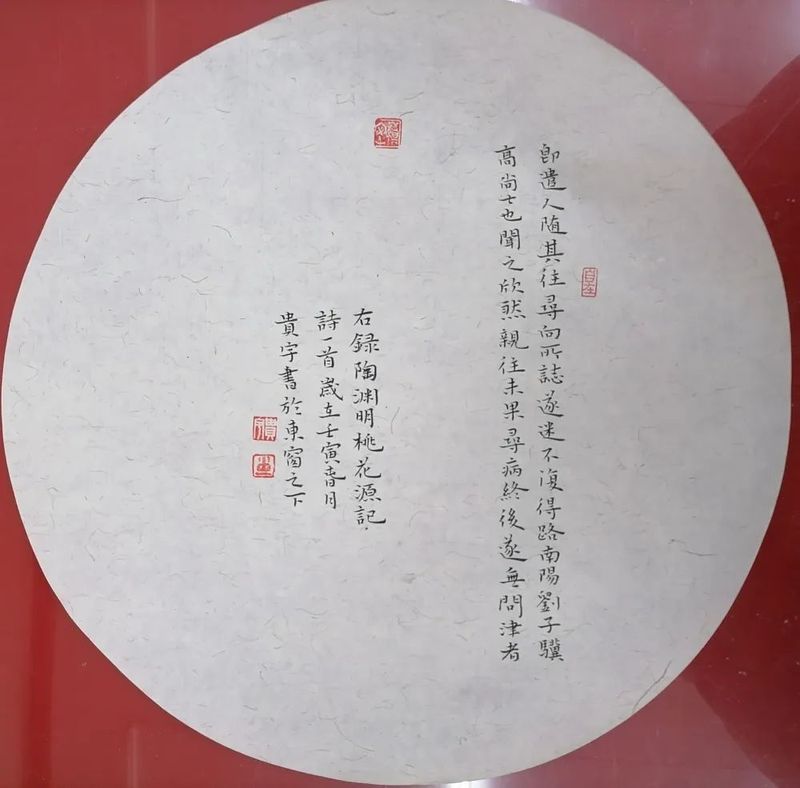 即遣人随其往尋向所誌遂迷不復得路南陽劉子驥
高尚士也聞之欣然親往未果尋病終後遂無問津者
右録陶渊明桃花源記
詩一首歲在壬寅春月
貴宇書於東窗之下